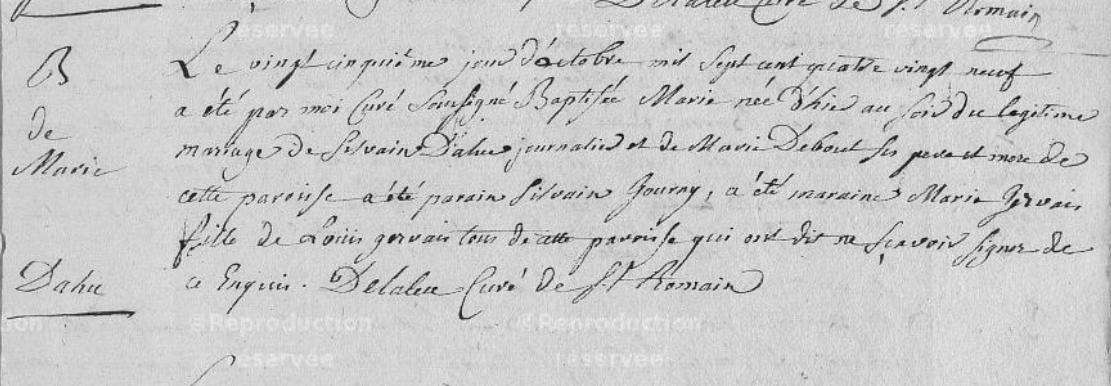 Delaleu Curé de St Romain
B
de
Marie
Dahu
Le vingt cinquième jour d'octobre mil sept cent quatre vingt neuf
a été par moi Curé Soussigné Baptisée Marie née d'hier au soir du legitime
mariage de Silvain Dahu journalier et de Marie Debout ses pere et mere de
cette paroisse a été parain Silvain Journy, a été maraine Marie Gervais
fille de Louis gervais tous de cette paroisse qui ont dit ne sçavoir signer de
ce Enquis. Delaleu Curé de St Romain
©Reproduction
réservée